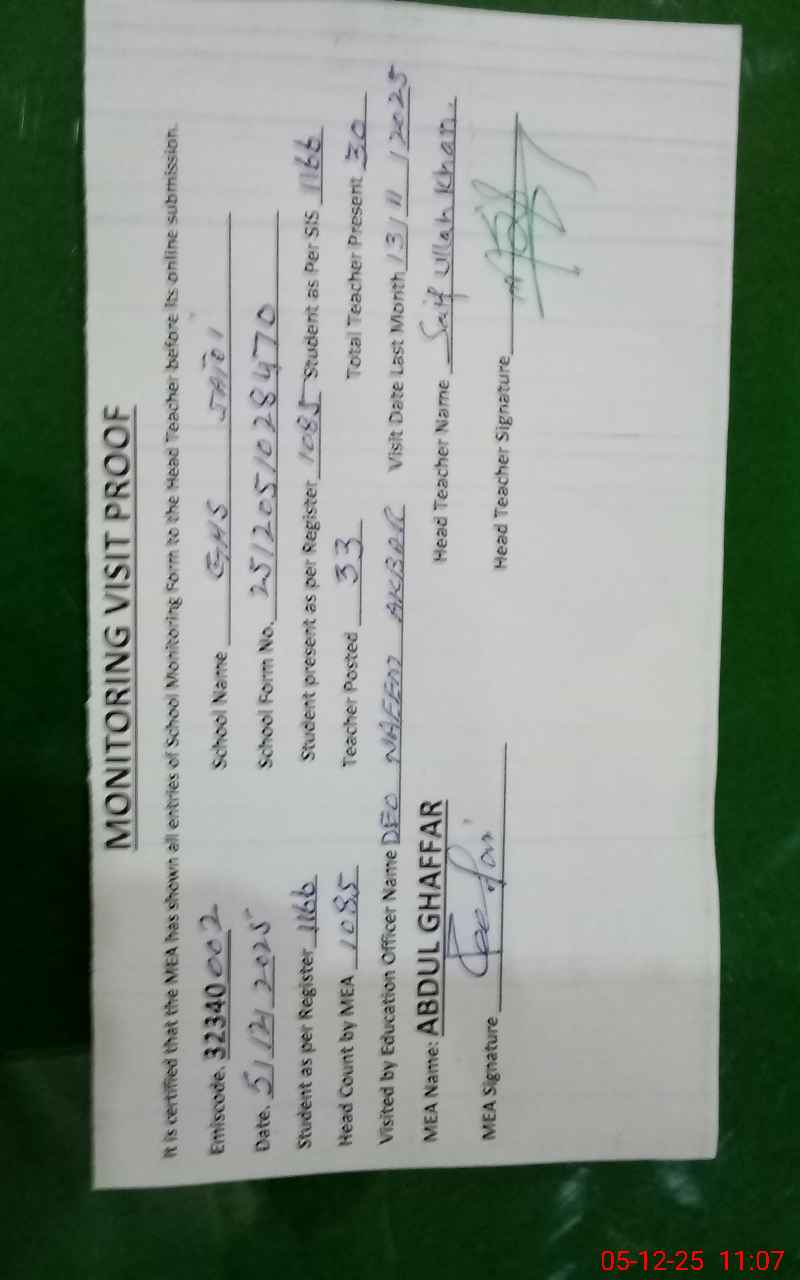 MONITORING VISIT PROOF
It is certified that the MEA has shown all entries of School Monitoring Form to the Head Teacher before its online submission.
Emiscode. 32340002 School Name GHS JATOI
Date. 5/12/2025 School Form No. 2512051028470
Student as per Register 1166 Student present as per Register 1085 Student as Per SIS 1166
Head Count by MEA 1085 Teacher Posted 33 Total Teacher Present 30
Visited by Education Officer Name DEO NAEEM AKBAR Visit Date Last Month 13/11/2025
MEA Name: ABDUL GHAFFAR Head Teacher Name Saif Ullah Khan.
MEA Signature Head Teacher Signature
05-12-25 11:07